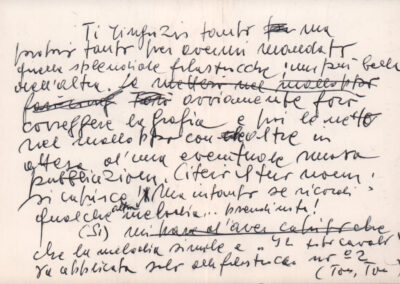 Ti ringrazio tanto ma
proprio tanto per avermi mandato
quelle splendide filastrocche: una più bella
dell'altra. Le metterei nel malloppo
ovviamente farò
correggere la grafia e poi le metto
nel malloppo con altre in
attesa d'una eventuale nuova
pubblicazione. Citerò il tuo nome,
si capisce! Ma intanto se ricordi
qualche altra melodia... prendi nota!
(Si)
che la melodia simile a "
va applicata solo alla filastrocca nº 2
(Ton, Ton)